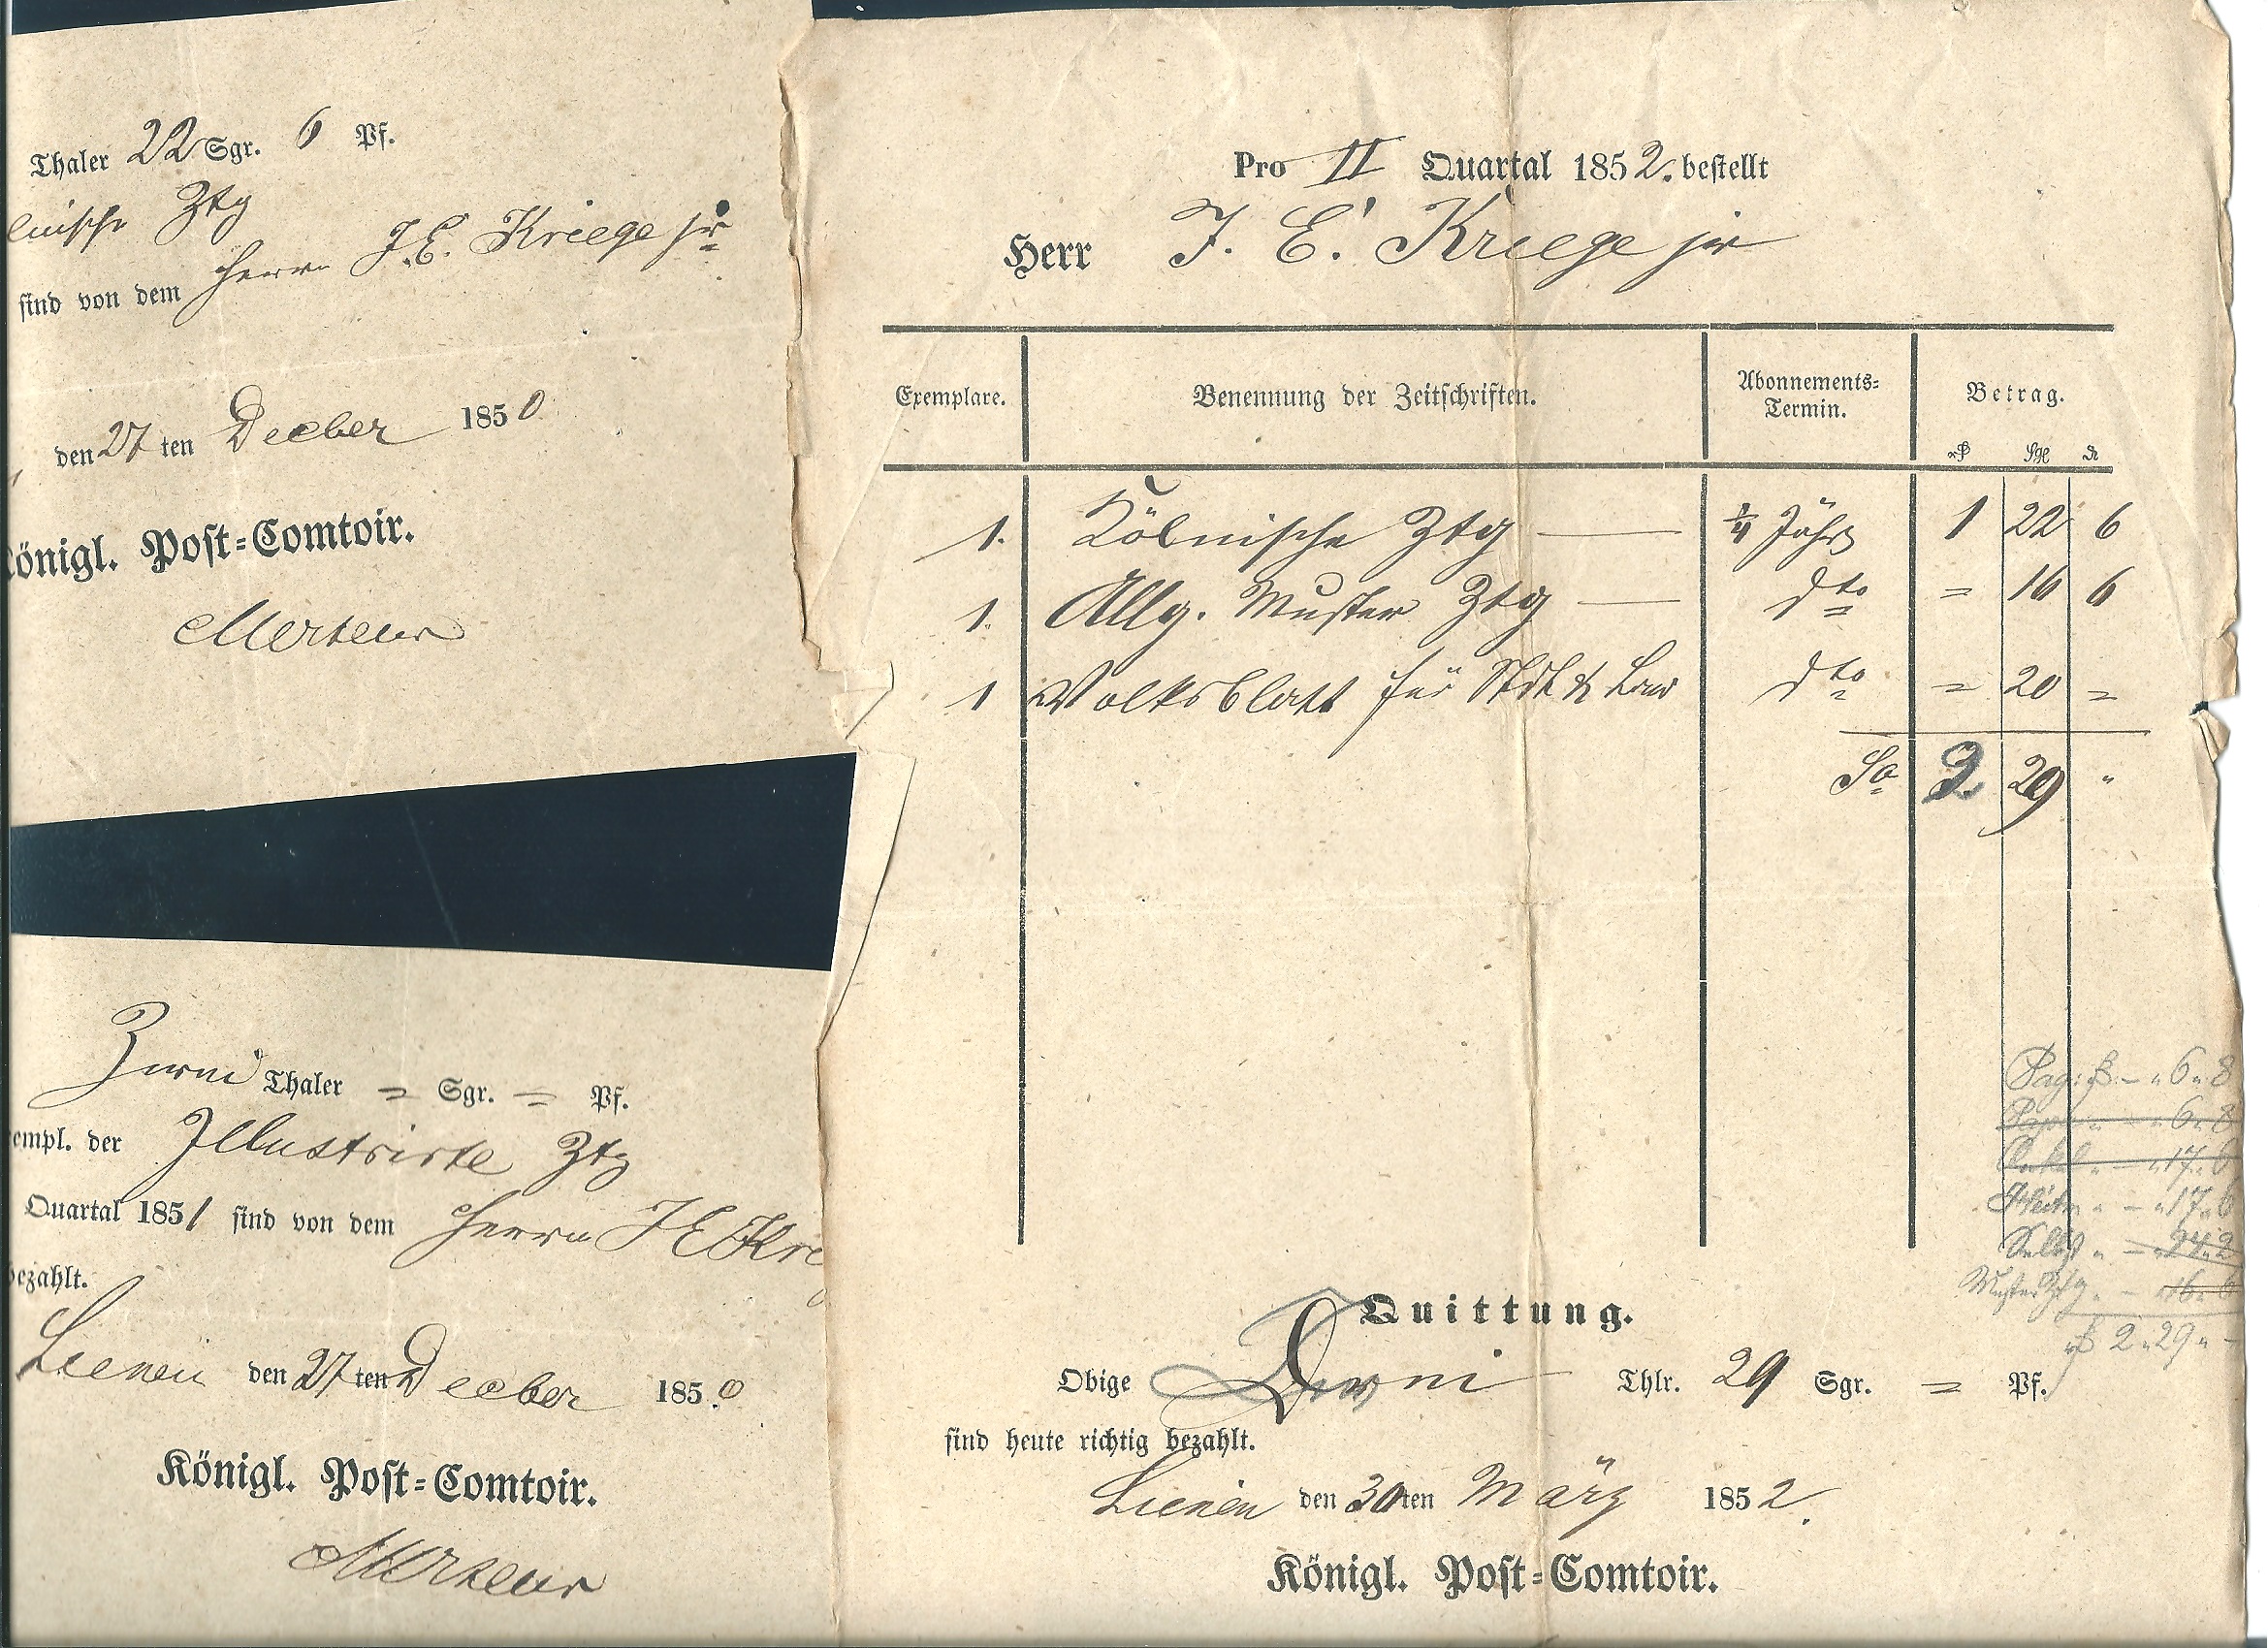 Thaler 22 Sgr. 6 Pf.
lnische Ztg
sind von dem Herrn J. E. Kriege jr
den 27 ten Decber 1850
Königl. Post-Comtoir.
Zwei Thaler = Sgr. = Pf.
empl. der Illustrirte Ztg
Quartal 1851 sind von dem Herrn J E Krie
bezahlt.
Lienen den 27 ten Decber 1850
Königl. Post-Comtoir.
Pro II Quartal 1852. bestellt
Herr J. E. Kriege jr
Exemplare. Benennung der Zeitschriften. Abonnements-Termin. Betrag.
1. Kölnische Ztg — 1/4 Jähr 1 22 6
1. Allg. Muster Ztg — dto = 16 6
1 Volksblatt für Stdt & Land dto = 20 =
Sa 2 29 "
6 " 8
6 " 8
17 " 6
17 " 6
Selbst " — 24 " 2
Musterztg " — 16 " 6
2 " 29 " -
Quittung.
Obige Zwei Thlr. 29 Sgr. = Pf.
sind heute richtig bezahlt.
Lienen den 30ten März 1852.
Königl. Post-Comtoir.